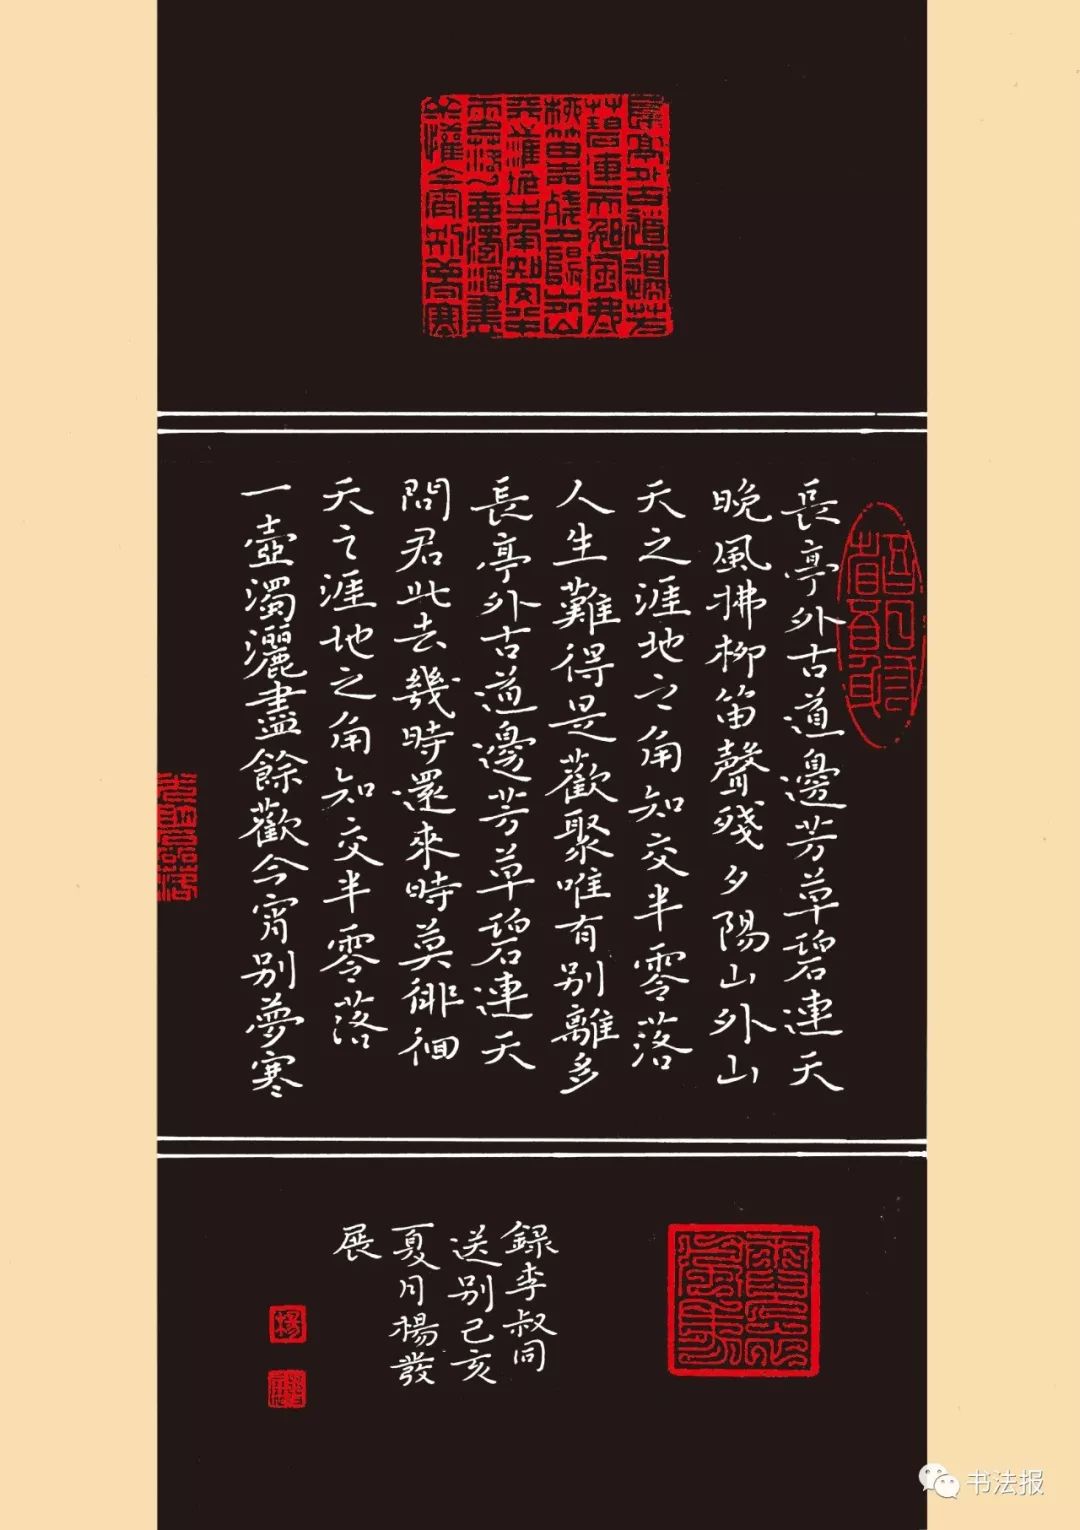 長亭外古道邊芳草碧連天
晚風拂柳笛聲殘夕陽山外山
天之涯地之角知交半零落
人生難得是歡聚唯有別離多
長亭外古道邊芳草碧連天
問君此去幾時還來時莫徘徊
天之涯地之角知交半零落
一壺濁灑盡餘歡今宵別夢寒
錄李叔同
送別己亥
夏月楊發
展
楊
书法报